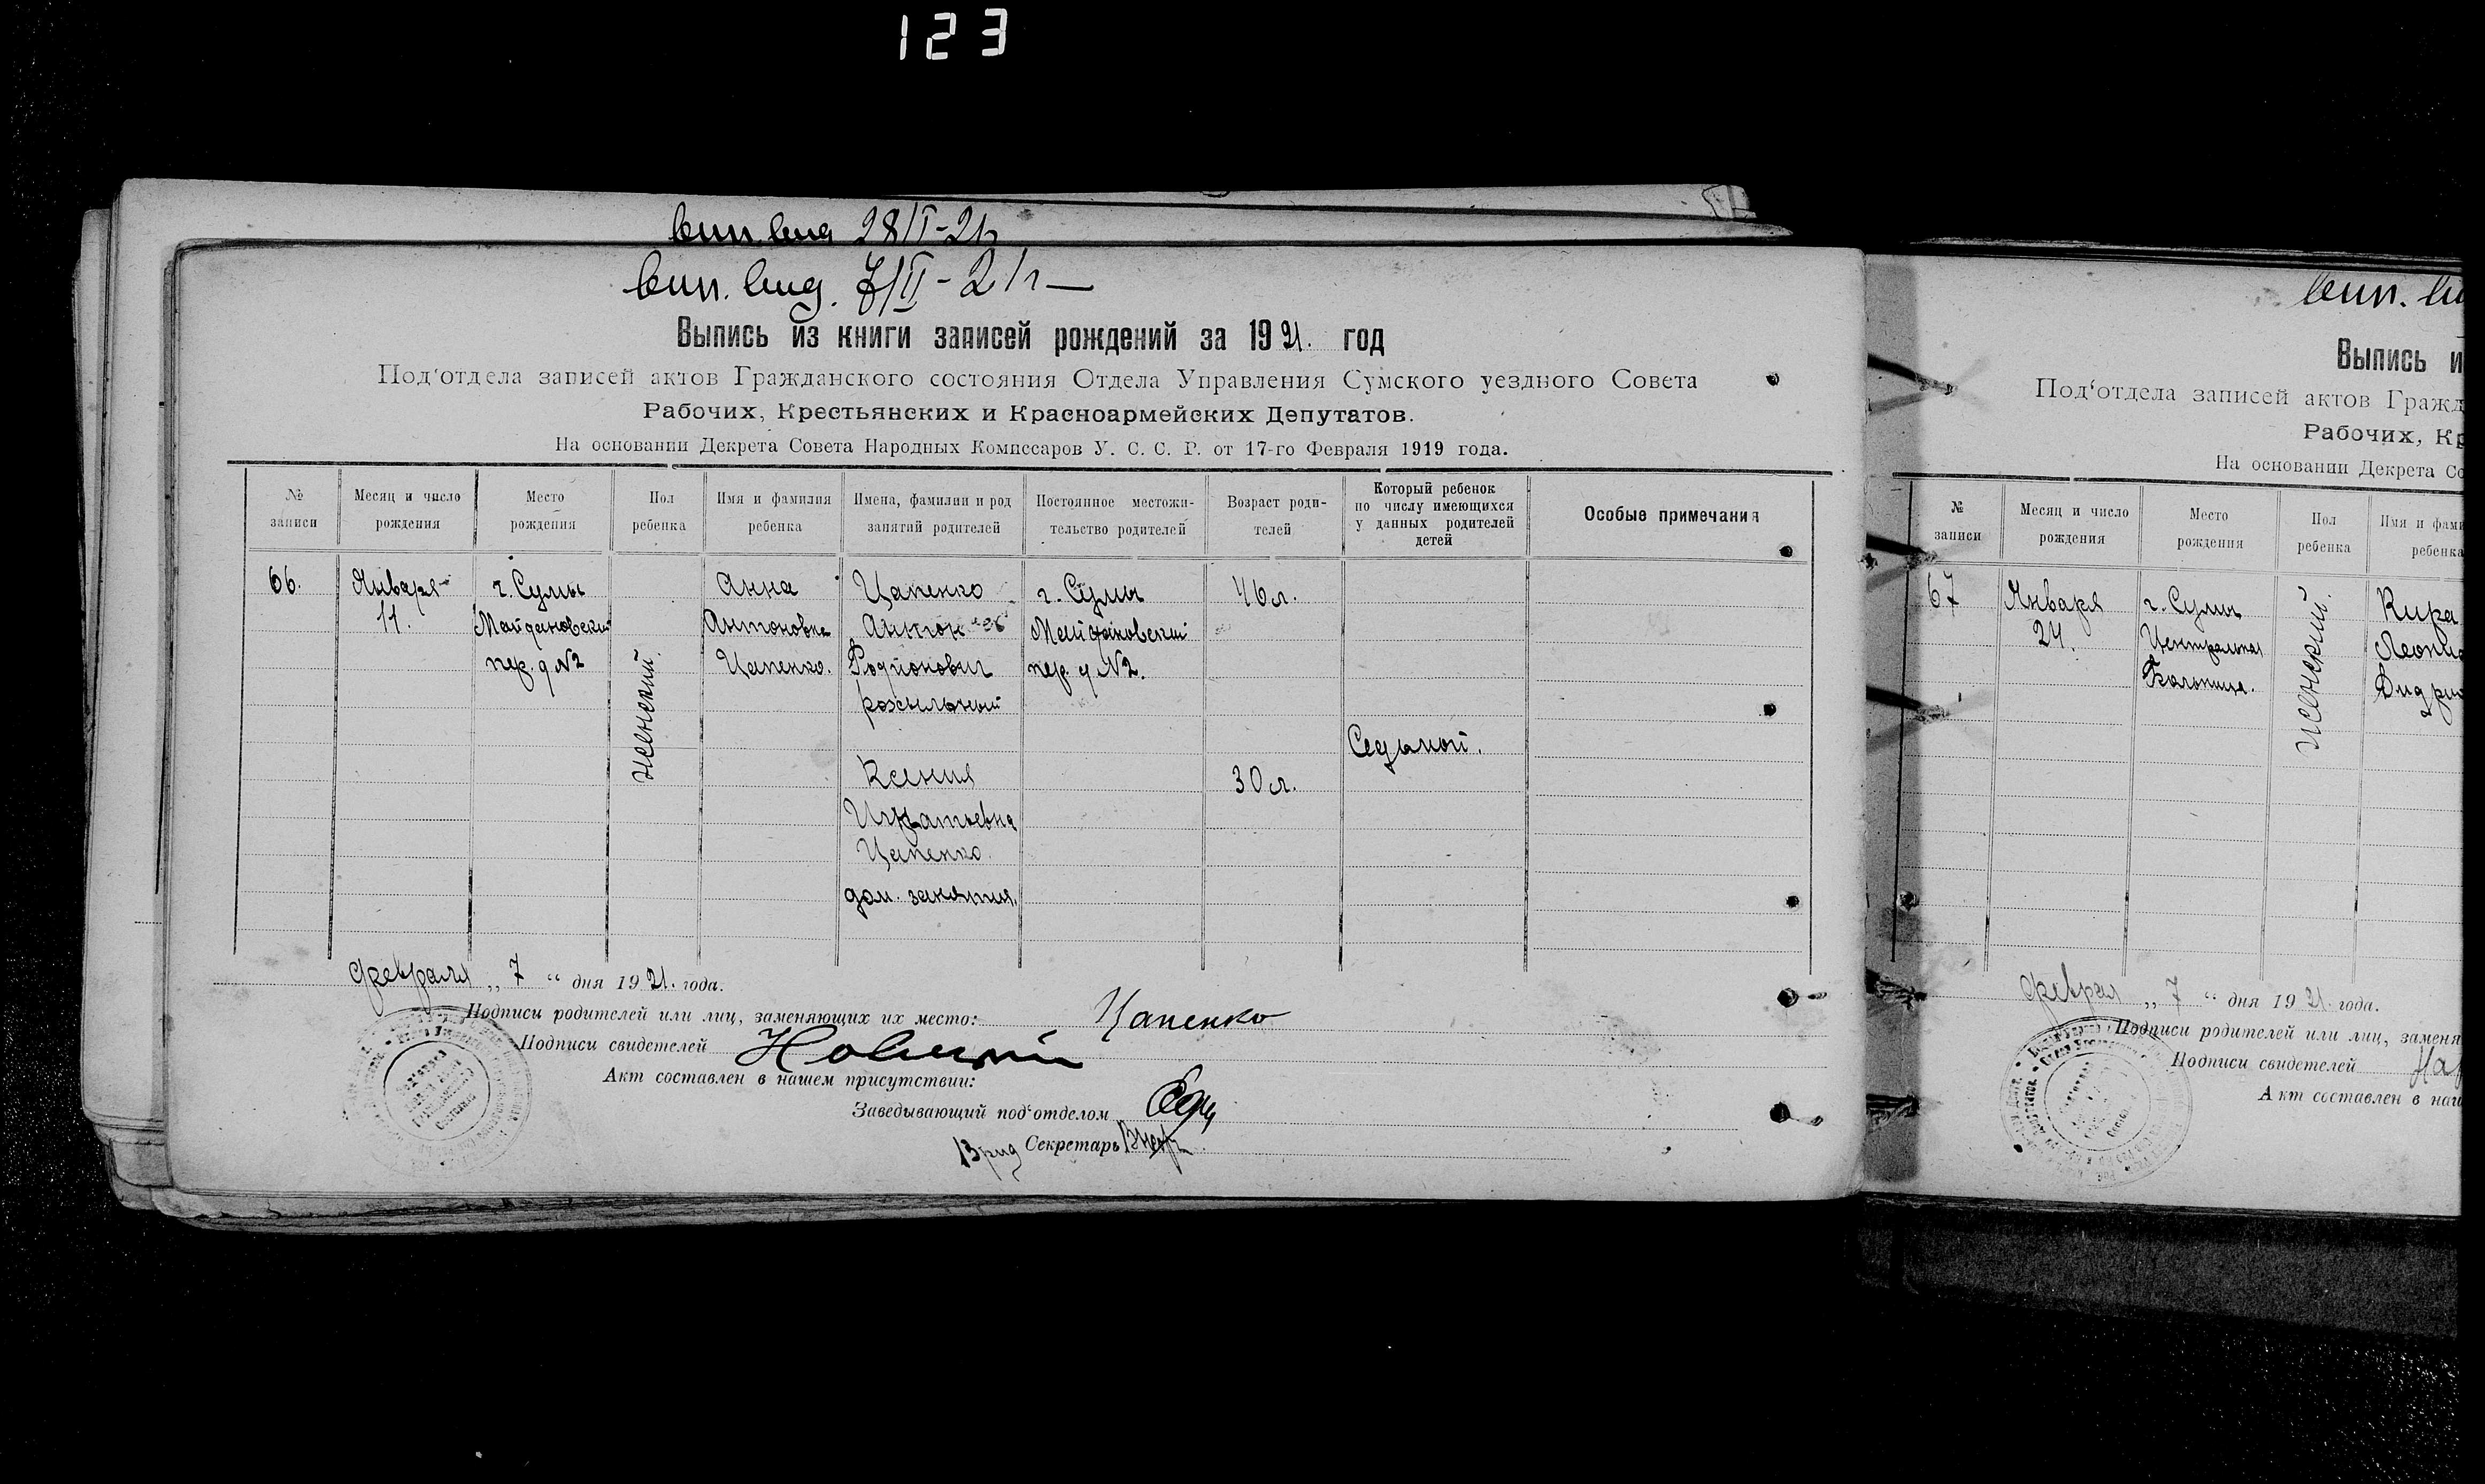 123
вып. выд. 28/I-21г
вып. выд. 7/II-21г
Выпись из книги записей рождений за 1921. год
Под‘отдела записей актов Гражданского состояния Отдела Управления Сумского уездного Совета
Рабочих, Крестьянских и Красноармейских Депутатов.
На основании Декрета Совета Народных Комиссаров У. С. С. Р. от 17-го Февраля 1919 года.
№ записи
Месяц и число рождения
Место рождения
Пол ребенка
Имя и фамилия ребенка
Имена, фамилии и род занятий родителей
Постоянное местожительство родителей
Возраст родителей
Который ребенок по числу имеющихся у данных родителей детей
Особые примечания
66.
Января
11.
г. Сумы
Майдановский
пер. д №2
женский.
Анна
Антоновна
Цапенко.
Цапенко
Антон
Родионович
розсыльный
Ксения
Игнатьевна
Цапенко.
дом. занятия.
г. Сумы
Майдановский
пер. д №2.
46 л.
30 л.
Седьмой.
Февраля „ 7 “ дня 1921. года.
Подписи родителей или лиц, заменяющих их место: Цапенко
Подписи свидетелей
Акт составлен в нашем присутствии:
Заведывающий под‘отделом
Врид Секретарь
вып.
Выпись и
Под‘отдела записей актов Гражд
Рабочих, Кр
На основании Декрета Со
№ записи
Месяц и число рождения
Место рождения
Пол ребенка
Имя и фами
ребенка
67
Января
24.
г. Сумы
Центральная
Больница.
женский.
Кира
Леони
Феврал „ 7 “ дня 1921. года.
Подписи родителей или лиц, заменя
Подписи свидетелей
Акт составлен в наш